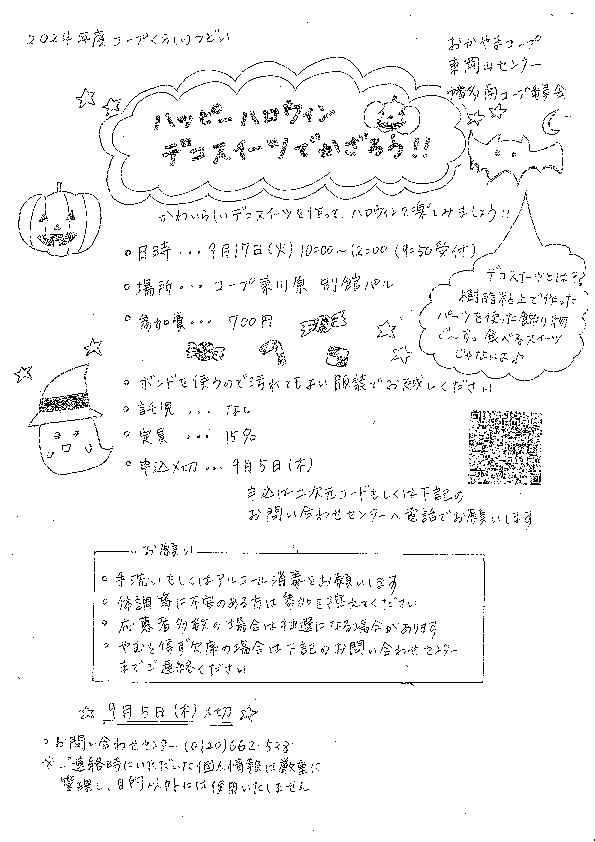 2024年度 コープくらしのつどい
おかやまコープ
東岡山センター
幡多南コープ委員会
ハッピーハロウィン
デコスイーツでかざろう!!
かわいらしいデコスイーツを作って、ハロウィンを楽しみましょう!!
○日時・・・9月17日(火) 10:00〜12:00 (9:50受付)
○場所・・・コープ 別館パル
○参加費・・・700円
デコスイーツとは??
樹脂粘土で作った
パーツを使った飾り物
で〜す。食べるスイーツ
じゃないよ♪
○ボンドを使うので汚れてもよい服装でお越しください
○託児 ・・・なし
○定員 ・・・15名
○申込〆切・・・9月5日(木)
申込は二次元コードもしくは下記の
お問い合わせセンターへ電話でお願いします
お願い
○手洗いもしくはアルコール消毒をお願いします
○体調等に不安のある方は参加を控えてください
○応募者多数の場合は抽選になる場合があります
○やむを得ず欠席の場合は下記のお問い合わせセンター
までご連絡ください
☆9月5日(木)〆切☆
○お問い合わせセンター(0120)662-533
※ご連絡時にいただいた個人情報は厳重に
管理し、目的以外には使用いたしません